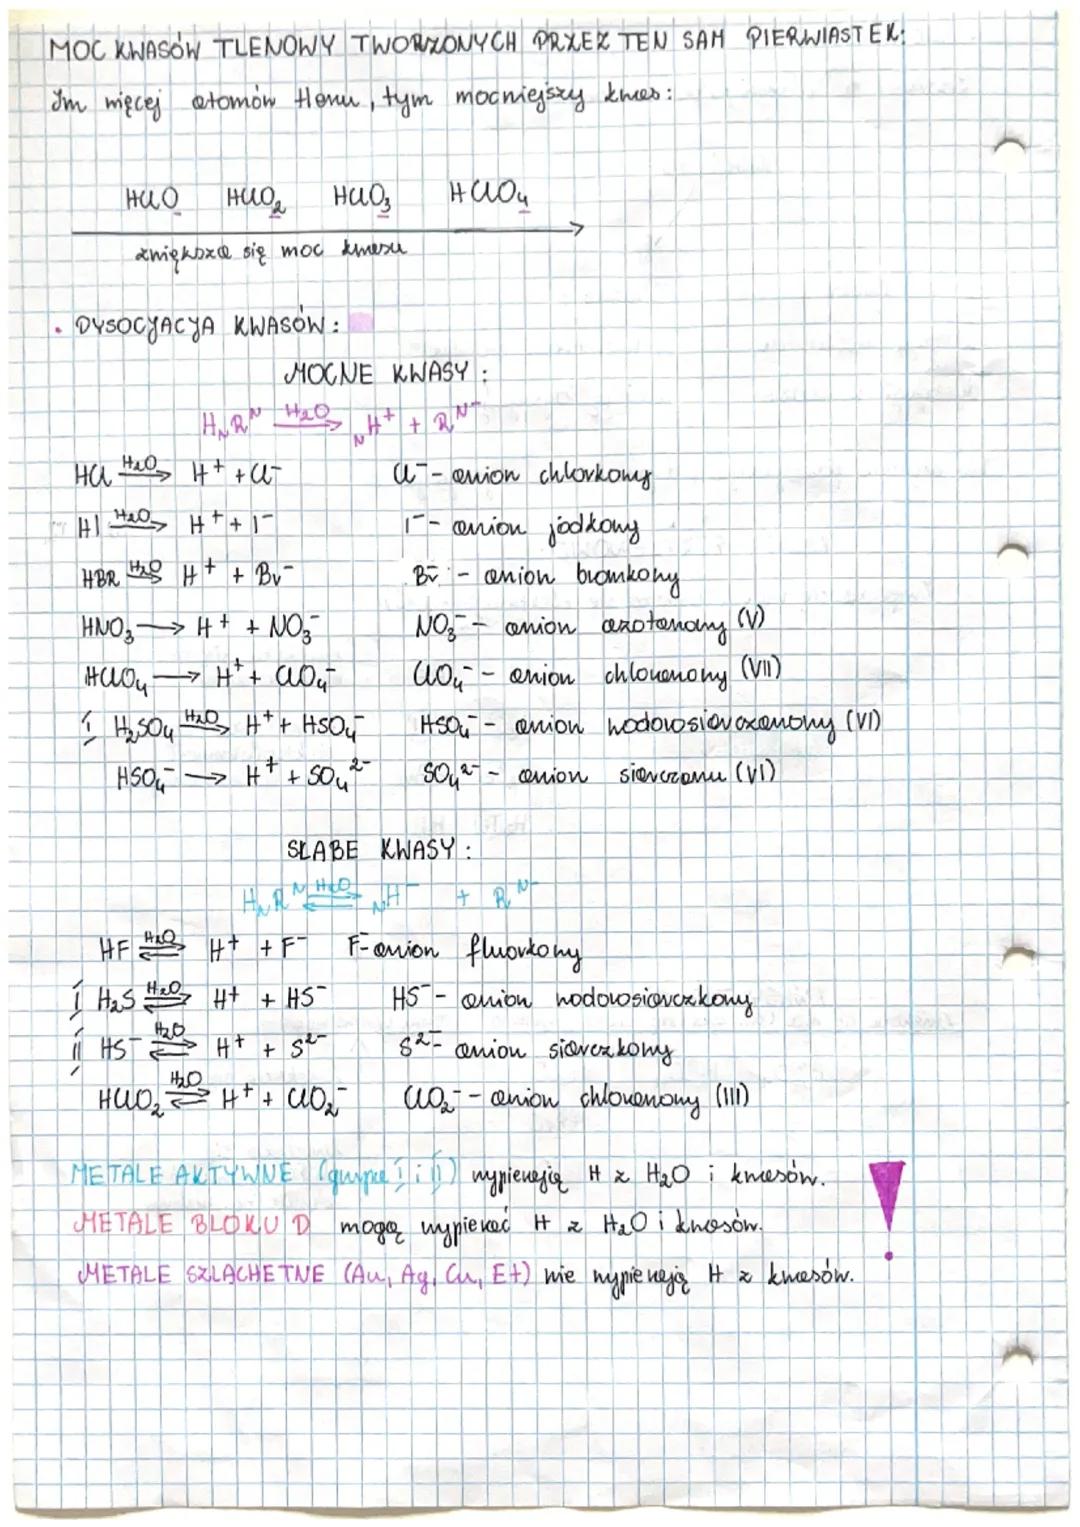 MOC KWASÓW TLENOWY TWORZONYCH PRZEZ TEN SAM PIERWIASTEK:
Im więcej atomów tlenu, tym mocniejszy kwas:
HClO HClO₂ HClO₃ HClO₄
zwiększa się moc kwasu
• DYSOCJACJA KWASÓW:
MOCNE KWASY:
HₙRᴺ H₂O→ ₙH⁺ + Rᴺ⁻
HCl H₂O→ H⁺ + Cl⁻ Cl⁻ - anion chlorkowy
HI H₂O→ H⁺ + I⁻ I⁻ - anion jodkowy
HBR H₂O→ H⁺ + Br⁻ Br⁻ - anion bromkowy
HNO₃ → H⁺ + NO₃⁻ NO₃⁻ - anion azotanowy (V)
HClO₄ → H⁺ + ClO₄⁻ ClO₄⁻ - anion chloranowy (VII)
I H₂SO₄ H₂O→ H⁺ + HSO₄⁻ HSO₄⁻ - anion wodorosiarczanowy (VI)
HSO₄⁻ → H⁺ + SO₄²⁻ SO₄²⁻ - anion siarczanu (VI)
SŁABE KWASY:
HₙRᴺ H₂O⇌ ₙH⁻ + Rᴺ⁻
HF H₂O⇌ H⁺ + F⁻ F⁻ anion fluorkowy
I H₂S H₂O⇌ H⁺ + HS⁻ HS⁻ - anion wodorosiarczkowy
II HS⁻ H₂O⇌ H⁺ + S²⁻ S²⁻ anion siarczkowy
HClO₂ H₂O⇌ H⁺ + ClO₂⁻ ClO₂⁻ - anion chloranowy (III)
METALE AKTYWNE (grupa I i II) wypierają H z H₂O i kwasów. !
METALE BLOKU D mogą wypierać H z H₂O i kwasów.
METALE SZLACHETNE (Au, Ag, Cu, Et) nie wypierają H z kwasów.